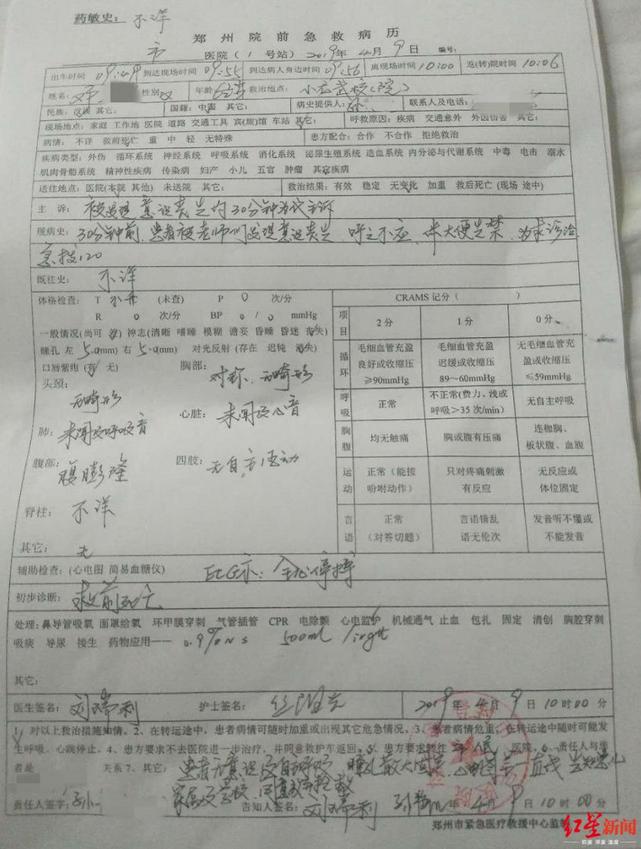 药敏史：不详
郑州院前急救病历
市 医院（1号站）2019年4月9日 编号：
出车时间 09:49 到达现场时间 09:55 到达病人身边时间 09:56 离现场时间 10:00 返(转)院时间 10:06
姓名： 性别 女 年龄 救治地点：小龙武校(院)
民族：汉族 其它： 国籍：中国 其它： 病史提供人： 联系人及电话：
现场地点：家庭 工作地 医院 道路 交通工具 宾(旅)馆 车站 其它： 呼救原因：疾病 交通意外 外因伤害 其它：
病情：不详 救前死亡 重 中 轻 无特殊 患方配合：合作 不合作 拒绝救治
疾病类型：外伤 循环系统 神经系统 呼吸系统 消化系统 泌尿生殖系统 造血系统 内分泌与代谢系统 中毒 电击 溺水
肌肉骨骼系统 精神性疾病 传染病 妇产 小儿 五官 肿瘤 其它疾病
送往地点：医院(本院 其他) 未送院 其它： 救治结果：有效 稳定 无变化 加重 救后死亡(现场 途中)
主诉：被发现意识丧失约30分钟为代主诉
现病史：30分钟前，患者被老师们发现意识丧失，呼之不应，伴大便失禁，为求诊治
急拨120
既往史：不详
体格检查：T 不升 (未查) P 0 次/分
R 0 次/分 BP 0/0 mmHg
一般情况(尚可 差) 神志(清晰 嗜睡 模糊 谵妄 昏睡 昏迷 丧失)
瞳孔 左 5.0(mm) 右 5.0(mm) 对光反射 (存在 迟钝 消失)
口唇紫绀(有 无) 胸部：对称、无畸形
头颈：无畸形
心脏：未闻及心音
肺：未闻及呼吸音
腹部：腹膨隆 四肢：无自主活动
脊柱：不详
其它：无
CRAMS 记分（ ）
项目 2分 1分 0分
循环 毛细血管充盈良好或收缩压≥90mmHg 毛细血管充盈迟缓或收缩压89～60mmHg 无毛细血管充盈或收缩压≤59mmHg
呼吸 正常 不正常(费力、浅或呼吸＞35次/min) 无自主呼吸
胸腹 均无触痛 胸或腹有压痛 连枷胸、板状腹、血腹
运动 正常（能按吩咐动作） 只对疼痛刺激有反应 无反应或体位固定
言语 正常（对答切题） 言语错乱语无伦次 发音听不懂或不能发音
辅助检查：(心电图 简易血糖仪) ECG示：全心停搏
初步诊断：救前死亡
处理：鼻导管吸氧 面罩给氧 环甲膜穿刺 气管插管 CPR 电除颤 心电监护 机械通气 止血 包扎 固定 清创 胸腔穿刺
吸痰 导尿 接生 药物应用—— 0.9% NS 500ml ivgtt
其它：
医生签名： 护士签名： 2019年4月9日10时00分
1、对以上救治措施知情。2、在转运途中，患者病情可随时加重或出现其它危急情况。3、患者病情危重，在转运途中随时可能发
生呼吸、心跳停止。4、患方要求不去医院进一步治疗，并同意救护车返回。5、患方要求转往 医院。6、责任人与患
者是 关系7、其它： 患者无意识及自主呼吸，瞳孔散大固定，心电图示一直线，告知
家属及学校
责任人签字： 告知人签名： 年4月9日10时00分
郑州市紧急医疗救援中心监制
红星新闻